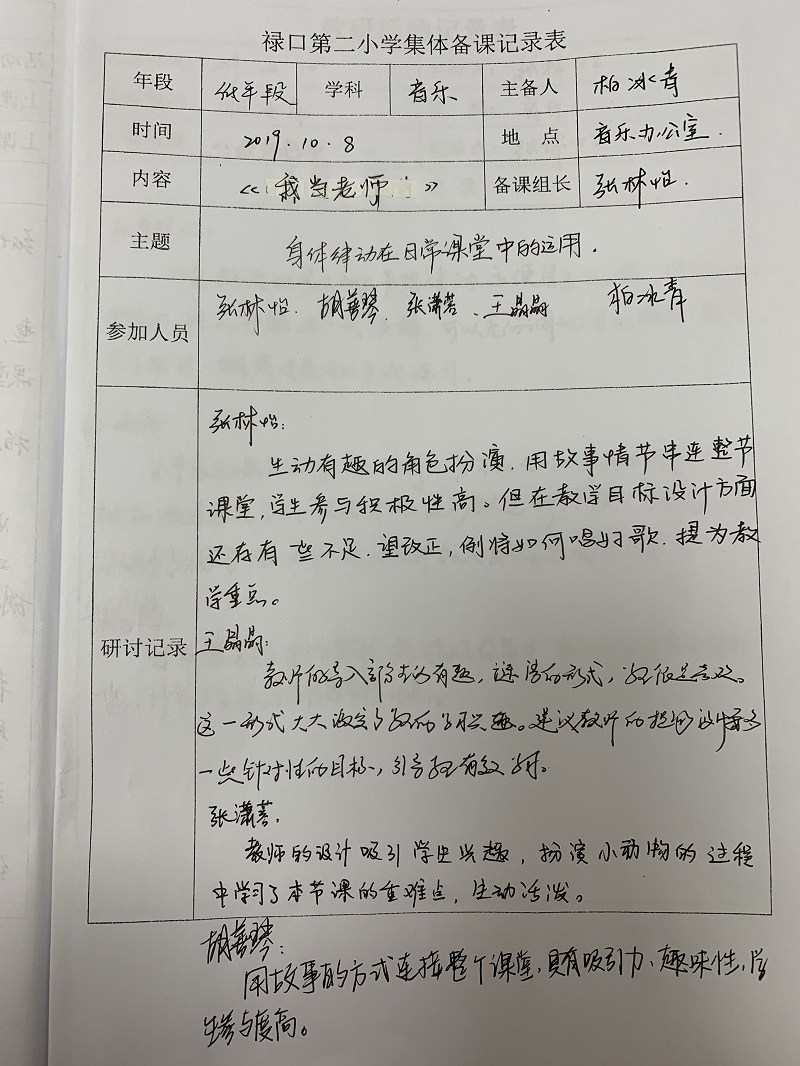 禄口第二小学集体备课记录表
年段 低年段 学科 音乐 主备人 柏冰青
时间 2019.10.8 地点 音乐办公室.
内容 《我当老师》 备课组长 张林怡.
主题 身体律动在日常课堂中的运用.
参加人员 张林怡. 胡善琴、张潇菩、王晶晶 柏冰青
研讨记录
张林怡:
生动有趣的角色扮演.用故事情节串连整节
课堂,学生参与积极性高。但在教学目标设计方面
还存有一些不足.望改正,例将如何唱好歌.提为教
学重点。
王晶晶:
教师的导入部分有趣,谜语的形式,
这一形式大大激发了的学兴趣。建议教师的提问设
一些针对性的目标,引导有效
张潇菩.
教师的设计吸引学生兴趣,扮演小动物的过程
中学习了本节课的重难点,生动活泼。
胡善琴:
用故事的方式连接整个课堂,具有吸引力、趣味性,学
生参与度高。